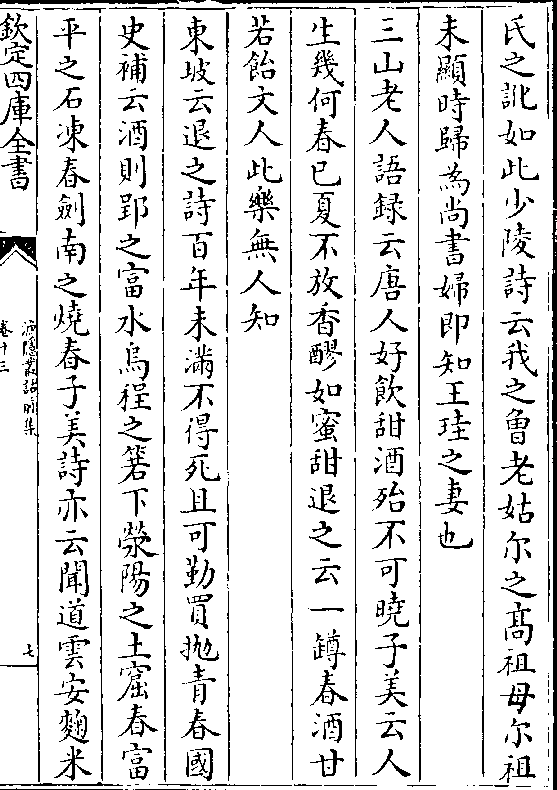 氏之訛如此少陵詩云我之曾老姑尔之髙祖母尔祖
未顯時歸為尚書婦即知王珪之妻也
三山老人語録云唐人好飲甜酒殆不可曉子美云人
生幾何春已夏不放香醪如蜜甜退之云一罇春酒甘
若飴文人此樂無人知
東坡云退之詩百年未滿不得死且可勤買抛青春國
史補云酒則郢之富水烏程之箬下滎陽之土窟春富
平之石凍春劍南之燒春子美詩亦云聞道雲安麴米
欽定四庫全書
漁隱叢話前集
卷十三
七